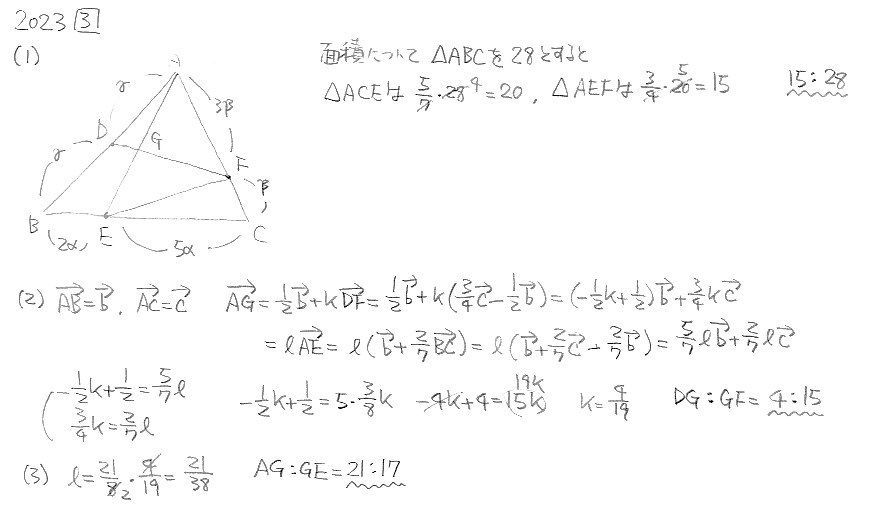 2023 3
(1)
面積について △ABCを28とすると
△ACEは 5/7・28 4 = 20 , △AEFは 3/4・20 5 = 15 15:28
A
γ
3β
D
G
γ
F
β
B
E
C
2α
5α
(2) AB→=b→, AC→=c→ AG→=1/2b→+kDF→=1/2b→+k(3/4c→-1/2b→)=(-1/2k+1/2)b→+3/4kc→
=ℓAE→=ℓ(b→+2/7BC→)=ℓ(b→+2/7c→-2/7b→)=5/7ℓb→+2/7ℓc→
-1/2k+1/2=5/7ℓ
3/4k=2/7ℓ
-1/2k+1/2=5・3/8k -4k+4=15k 19k k=4/19 DG:GF=4:15
(3) ℓ=21/8 2・4/19=21/38 AG:GE=21:17